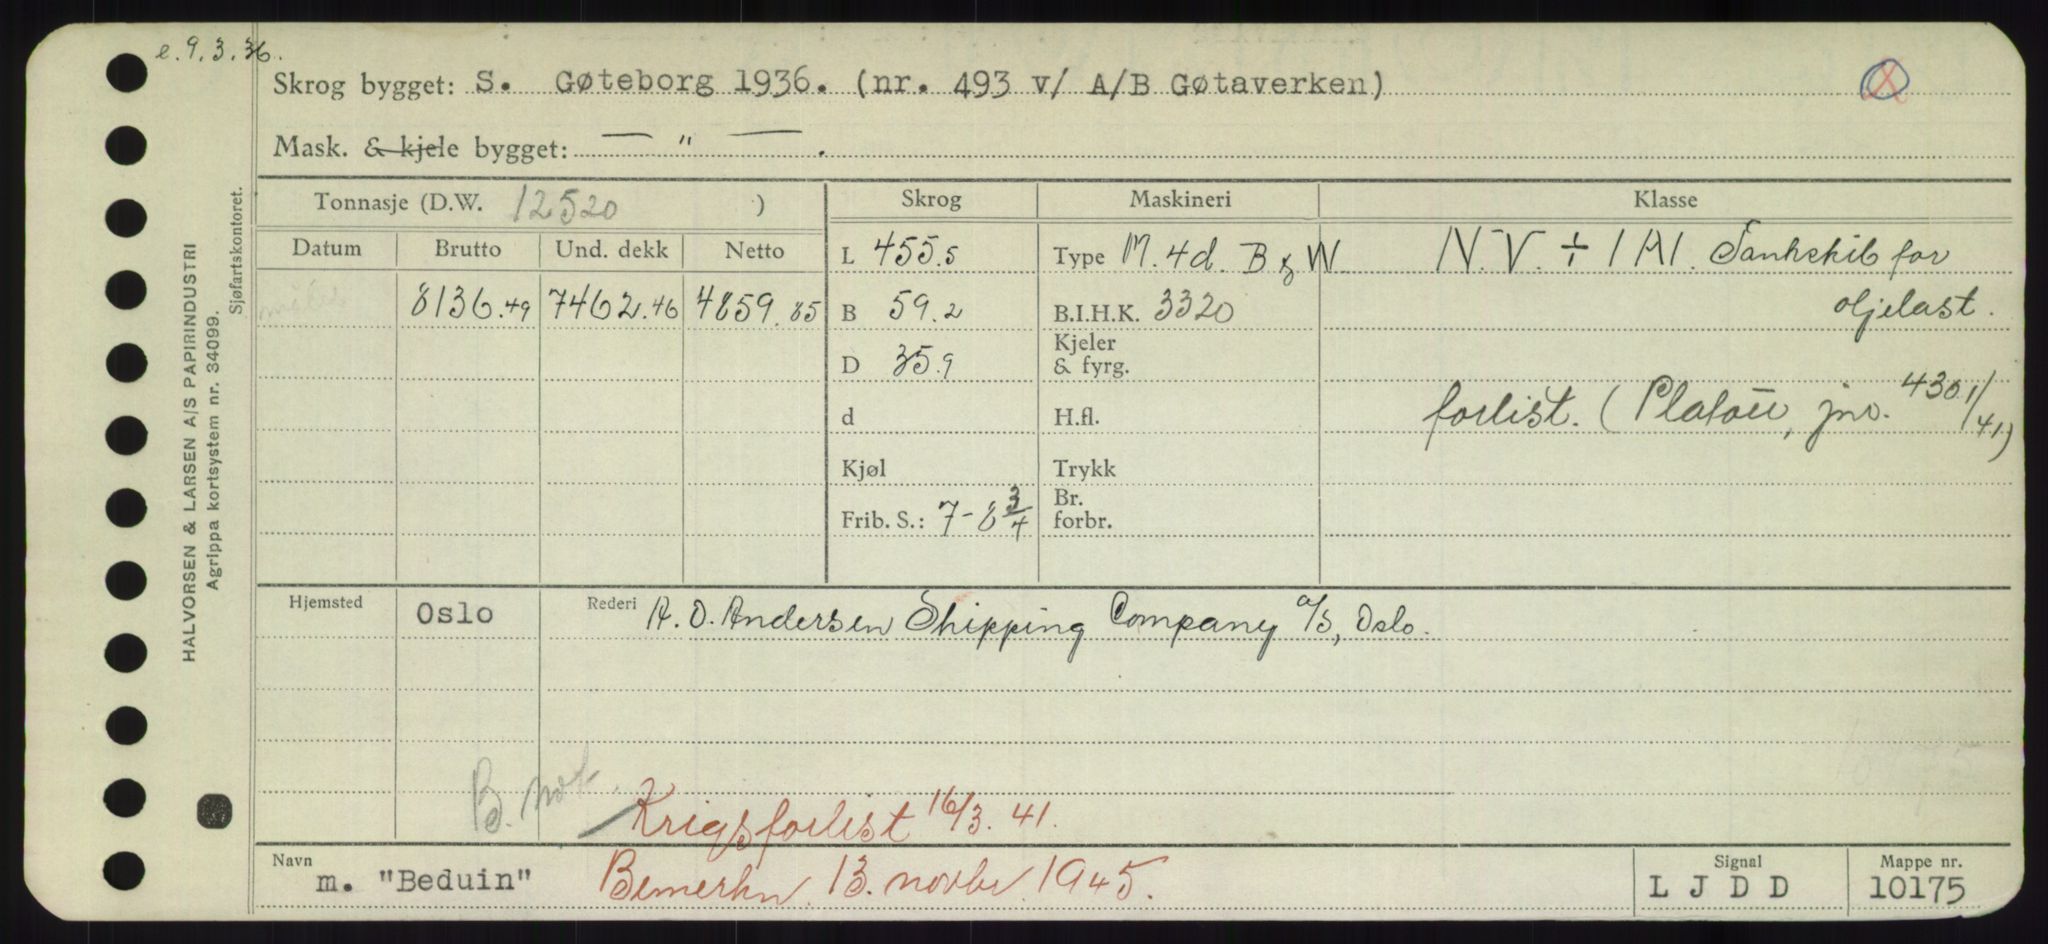 e. 9.3.36.
Skrog bygget: S. Gøteborg 1936. (nr. 493 v/ A/B Gøtaverken)
Mask. & kjele bygget: — " — .
HALVORSEN & LARSEN A/S PAPIRINDUSTRI
Agrippa kortsystem nr. 34099.
Sjøfartskontoret.
Tonnasje (D.W. 12520 ) Skrog Maskineri Klasse
Datum Brutto Und. dekk Netto L 455.5 Type M. 4d. B & W. N.V. ÷ 1A1. Tankskib for
8136.49 7462.46 4859.85 B 59.2 B.I.H.K. 3320 oljelast.
D 35.9 Kjeler
& fyrg.
d H.fl. forlist. (Platou, jnr. 4301/41)
Kjøl Trykk
Frib. S.: 7-8 3/4 Br.
forbr.
Hjemsted Oslo Rederi A. O. Andersen Shipping Company a/s, Oslo.
B. not. Krigsforlist 16/3. 41.
Navn m. "Beduin" Bemerkn. 13. novbr. 1945. Signal L J D D Mappe nr. 10175